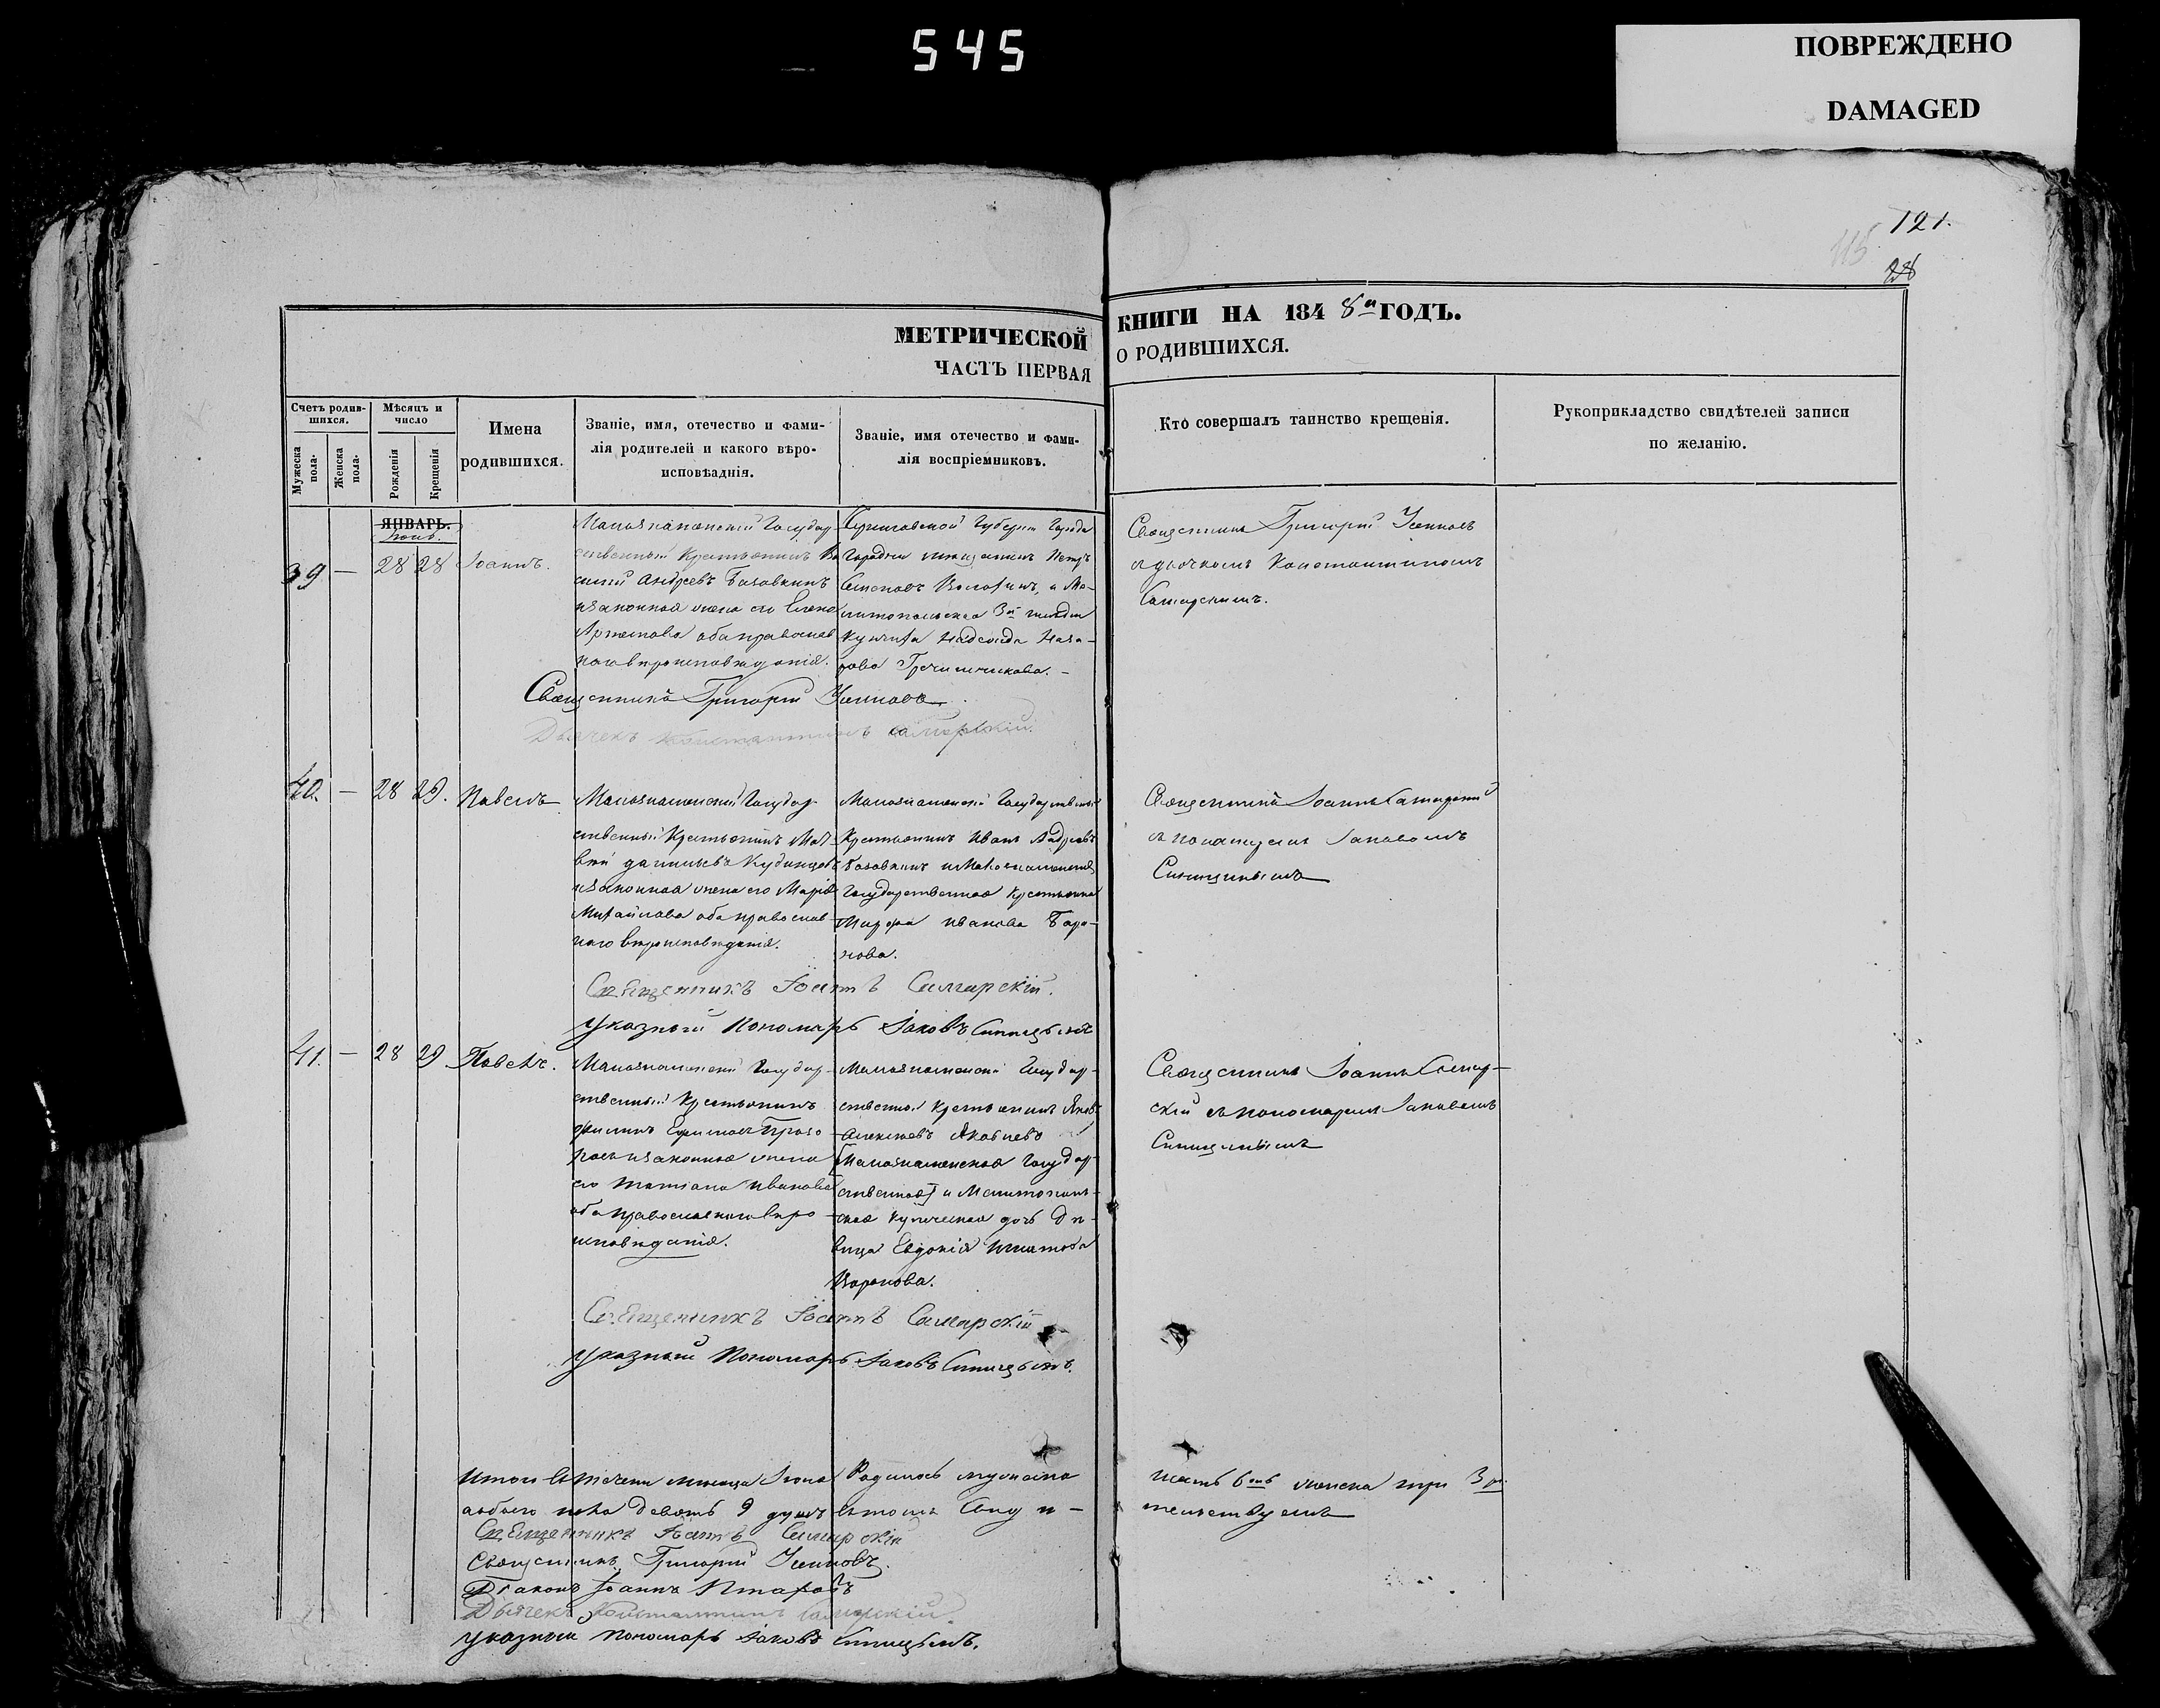 545
ПОВРЕЖДЕНО
DAMAGED
121.
115
28
МЕТРИЧЕСКОЙ КНИГИ НА 184 8й ГОДЪ.
ЧАСТЬ ПЕРВАЯ О РОДИВШИХСЯ.
Счетъ родив-
шихся.
Мужеска
пола.
Женска
пола.
Мѣсяцъ и
число
Рожденія
Крещенія
Имена
родившихся.
Званіе, имя, отечество и фами-
лія родителей и какого вѣро-
исповѣаднія.
Званіе, имя отечество и фами-
лія воспріемниковъ.
Кто совершалъ таинство крещенія.
Рукоприкладство свидѣтелей записи
по желанію.
ЯНВАРЬ.
39 — 28 28 Іоаннъ.
Малознаменскій Государ-
ственный Крестьянинъ Ва
силій Андреевъ Базавкинъ
и законная жена его Елена
Артемова оба православ
наго вѣроисповѣданія.
Черниговской Губерніи Города
Городни мѣщанинъ Петръ
Семеновъ и Ме-
литопольская 3й гильдіи
Купчиха Надежда Наза-
рова Гречишникова. —
Священникъ Григорій
съ дьячкомъ Константиномъ
Самарскимъ.
Священникъ Григорій
Дьячекъ Константинъ Самарскій.
40. — 28 29. Павелъ
Малознаменскій Государ-
ственный Крестьянинъ Мат-
вей Даниловъ
и законная жена его Марія
Михайлова оба православ-
наго вѣроисповѣданія.
Малознаменскій Государственный
Крестьянинъ Иванъ Андреевъ
Базавкинъ и Малознаменская
Государственная Крестьянка
Марфа Иванова
Священникъ Іоаннъ Самарскій
съ пономаремъ Іаковомъ
Синицынымъ
Священникъ Іоаннъ Самарскій.
Указный Пономарь Іаковъ Синицынъ
41. — 28 29 Павелъ.
Малознаменскій Государ-
ственный Крестьянинъ
Филипъ Ефимовъ
и законная жена
его Татіана Иванова
оба православнаго вѣро-
исповѣданія.
Малознаменскій Государ-
ственный Крестьянинъ Яковъ
Алексѣевъ Яковлевъ
Малознаменская Государ-
ственная и Мелитополь-
ская Купеческая дочь дѣ-
вица Евдокія Игнатова
Воронова.
Священникъ Іоаннъ Самар-
скій съ пономаремъ Іаковомъ
Синицынымъ
Священникъ Іоаннъ Самарскій
Указный Пономарь Іаковъ Синицынъ.
Итого въ теченіи мѣсяца Іюня Родилось мужеска шесть 6ть женска три 3и
а обоего пола девять 9 душъ въ томъ Свидѣ-
тельствуемъ
Священникъ Іоаннъ Самарскій
Священникъ Григорій
Діаконъ Іоаннъ
Дьячекъ Константинъ Самарскій.
Указный Пономарь Іаковъ Синицынъ.